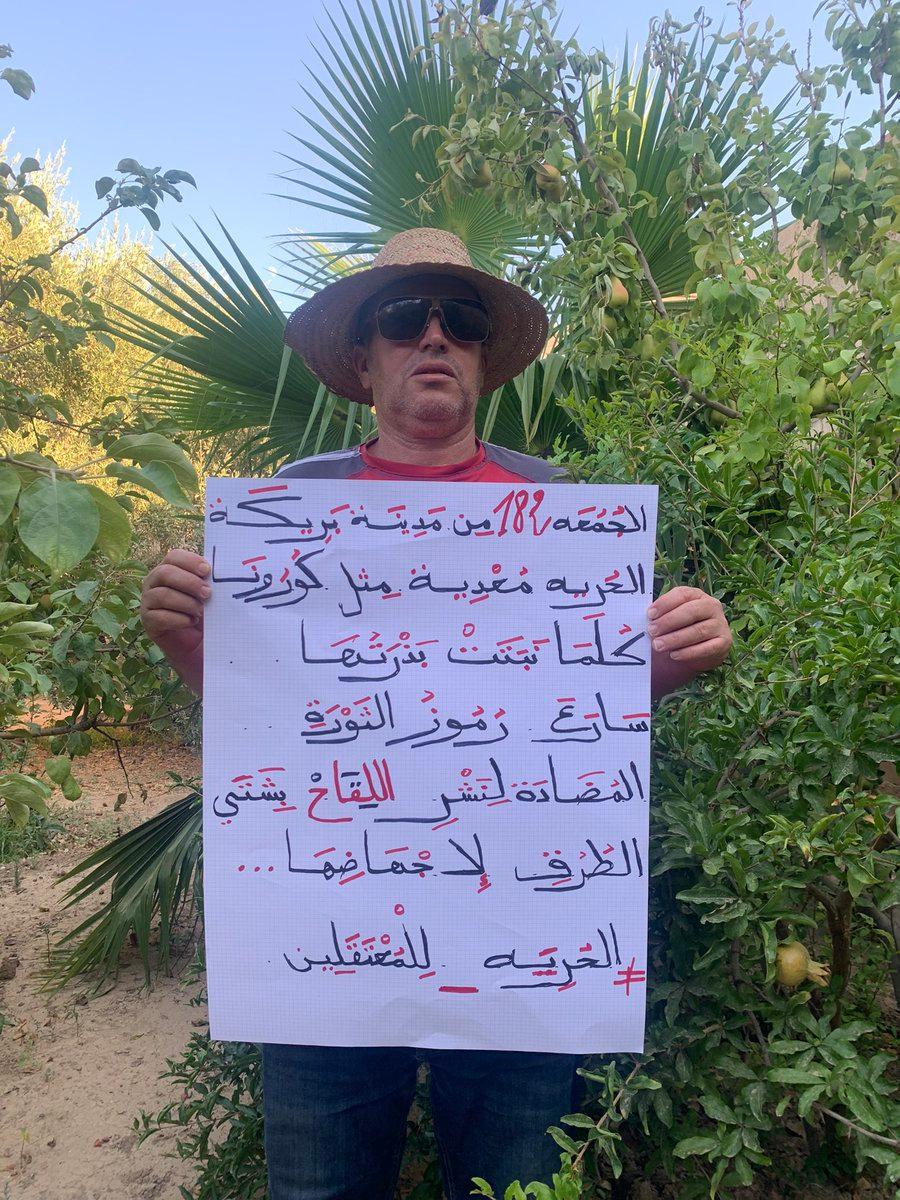 الجُمُعَه 182 مِن مَدِينَة بَرِيكَة
الحُريه مُعْدِية مِثل كُورُونَا
كُلَمَا نَبَتَتْ بَذْرَتُهَا ..
سَارَعَ رُمُوزُ الثَوْرَةِ ..
المُضَادَة لِنَشْرِ اللِقَاحْ بِشَتَي
الطُرُفِ لإجْهَاضِهَا...
#الحُرِيَه_لِلمُعْتَقَلِين